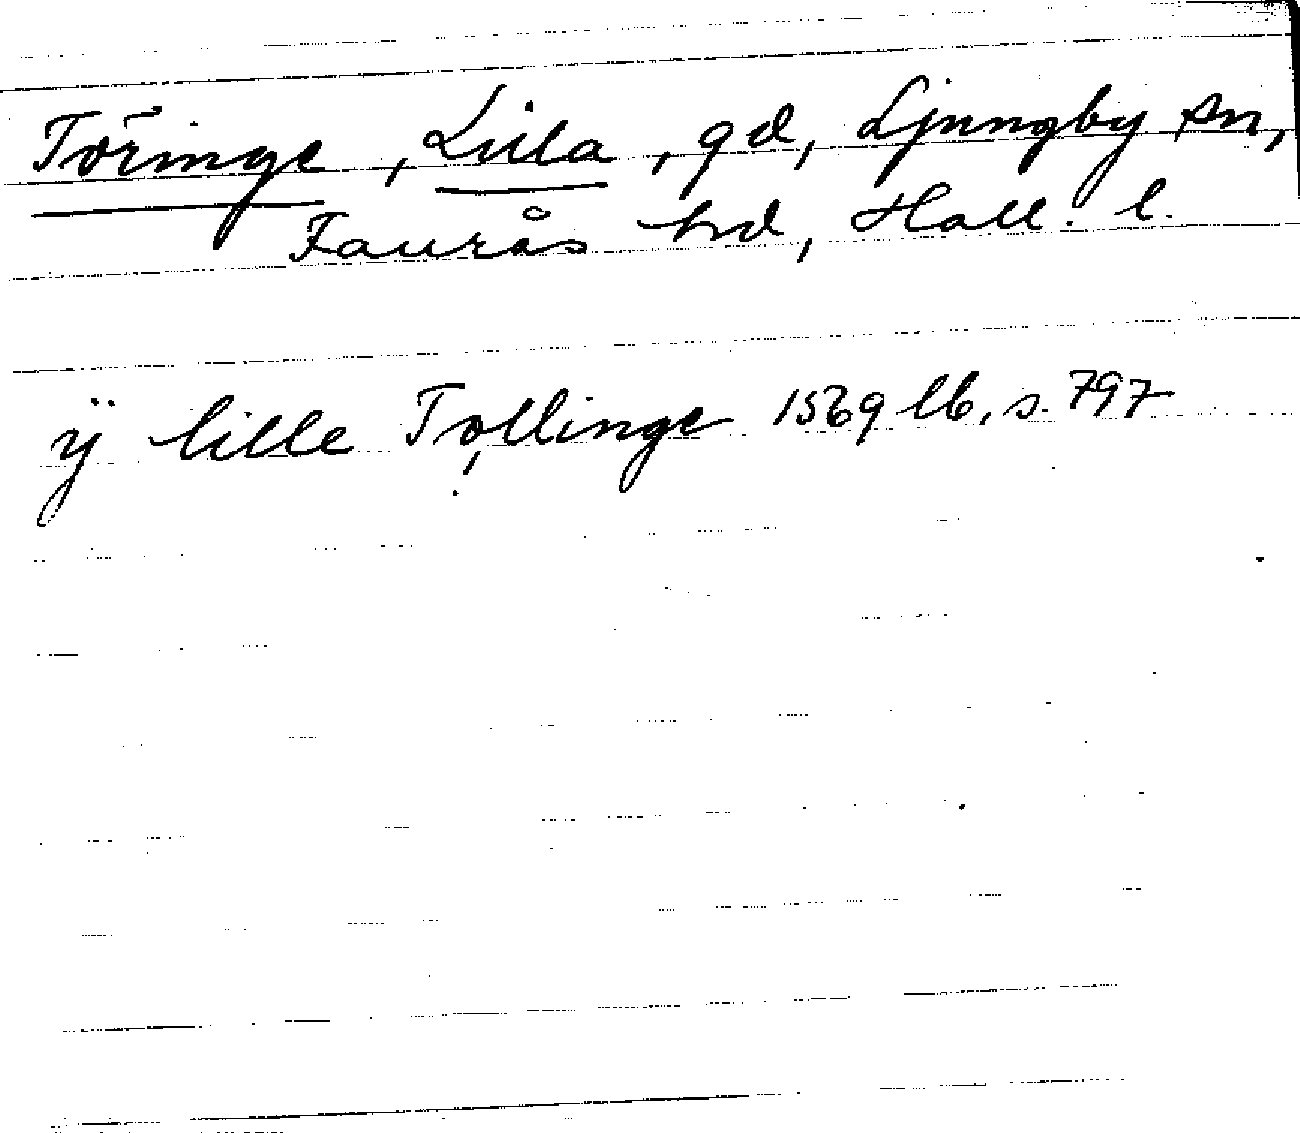 Töringe, Lilla, gd, Ljungby sn,
Faurås hd, Hall. l.
ÿ lille Tollinge 1569 lb, s. 797